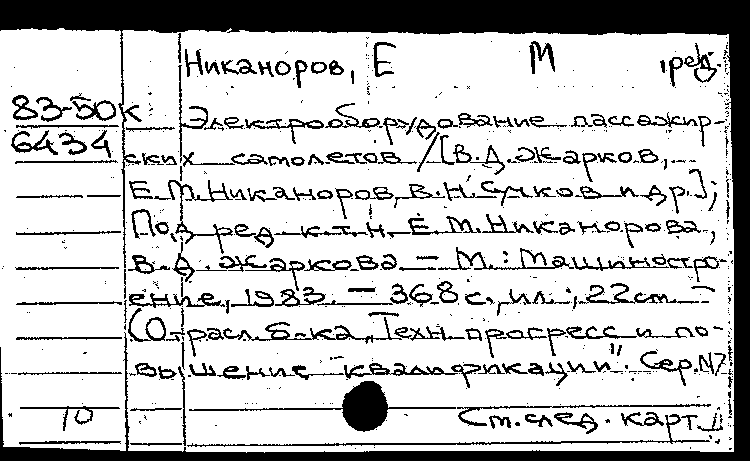 Никаноров, Е М , ред.
83-50К
6434
Электрооборудование пассажир-
ских самолетов / [В.Д. Жарков,
Е.М. Никаноров, В.Н. Сучков и др.];
Под ред к.т.н. Е.М. Никанорова,
В.Д. Жаркова. – М.: Машиностро-
ение, 1983. – 368 с., ил.; 22 см. –
(Отрасл. б-ка „Техн. прогресс и по-
вышение квалификации". Сер. №7
10
См. след. карт.